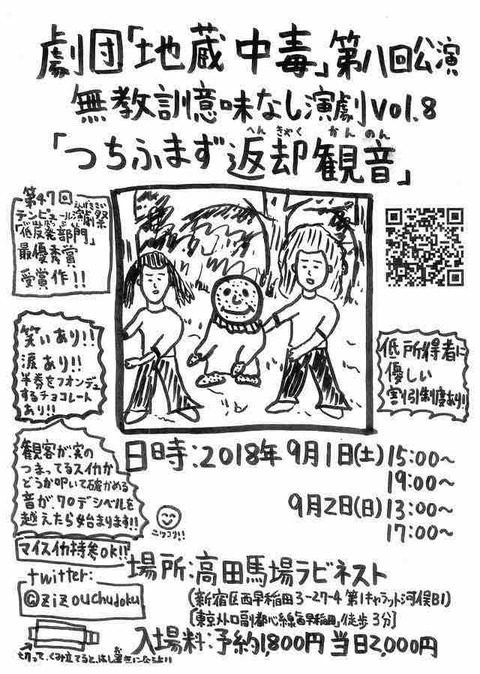 劇団「地蔵中毒」第八回公演
無教訓意味なし演劇vol.8
「つちふまず返却観音」
へんきゃく かんのん
第47回
テンピュール演劇祭
えんげきさい
「低反発部門」
最優秀賞
受賞作!!
笑いあり!!
涙あり!!
半券をフォンデュ
するチョコレート
あり!!
低所得者に
優しい
割引制度あり!!
観客が実の
つまってるスイカか
どうか叩いて確かめる
音が、70デシベルを
越えたら始まります!!
マイスイカ持参ok!!
ニッコリ!!
twitter:
@zizouchudoku
日時:2018年9月1日(土)15:00~
19:00~
9月2日(日)13:00~
17:00~
場所:高田馬場ラビネスト
(新宿区西早稲田3-27-4 第1キャラット河俣B1)
[東京メトロ副都心線「西早稲田」徒歩3分]
入場料:予約1,800円 当日2,000円